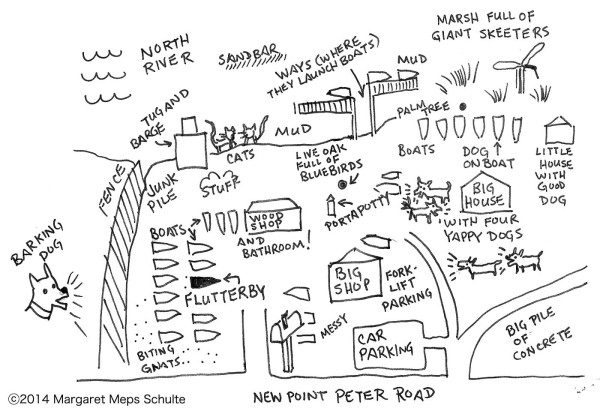 NORTH
RIVER
SANDBAR
WAYS (WHERE
THEY LAUNCH BOATS)
MUD
MARSH FULL OF
GIANT SKEETERS
TUG AND
BARGE
CATS
MUD
PALM
TREE
FENCE
JUNK
PILE
STUFF
LIVE OAK
FULL OF
BLUEBIRDS
BOATS
DOG
ON BOAT
LITTLE
HOUSE
WITH
GOOD
DOG
PORTAPOTTY
BIG
HOUSE
WITH FOUR
YAPPY DOGS
BOATS
WOOD
SHOP
AND
BATHROOM!
BARKING
DOG
FLUTTERBY
BIG
SHOP
FORK-
LIFT
PARKING
MESSY
CAR
PARKING
BIG PILE
OF
CONCRETE
BITING
GNATS
NEW POINT PETER ROAD
©2014 Margaret Meps Schulte